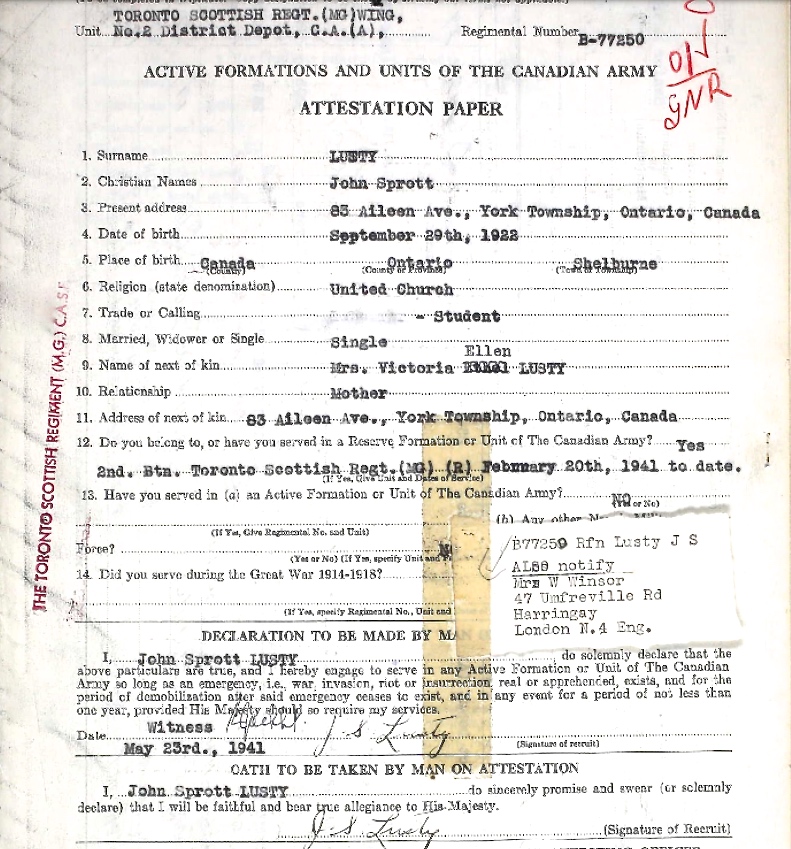 TORONTO SCOTTISH REGT.(MG)WING,
Unit No.2 District Depot, C.A.(A), Regimental Number B-77250
ACTIVE FORMATIONS AND UNITS OF THE CANADIAN ARMY
ATTESTATION PAPER
GNR
1. Surname LUSTY
2. Christian Names John Sprott
3. Present address 83 Aileen Ave., York Township, Ontario, Canada
4. Date of birth September 29th, 1922
5. Place of birth Canada Ontario Shelburne
(Country) (County or Province) (Town or Township)
6. Religion (state denomination) United Church
7. Trade or Calling - Student
8. Married, Widower or Single Single
Ellen
9. Name of next of kin Mrs. Victoria LUSTY
10. Relationship Mother
11. Address of next of kin 83 Aileen Ave., York Township, Ontario, Canada
12. Do you belong to, or have you served in a Reserve Formation or Unit of The Canadian Army? Yes
2nd. Btn. Toronto Scottish Regt.(MG) (R) February 20th, 1941 to date.
(If Yes, Give Unit and Dates of Service)
13. Have you served in (a) an Active Formation or Unit of The Canadian Army? NO
or No)
(b) Any other
(If Yes, Give Regimental No. and Unit)
Force?
(Yes or No) (If Yes, specify Unit and
14. Did you serve during the Great War 1914-1918?
(If Yes, specify Regimental No., Unit and
B77259 Rfn Lusty J S
ALSO notify
Mrs W Winsor
47 Umfreville Rd
Harringay
London N.4 Eng.
THE TORONTO SCOTTISH REGIMENT (M.G.) C.A.S.F.
DECLARATION TO BE MADE BY MAN
I, John Sprott LUSTY do solemnly declare that the
above particulars are true, and I hereby engage to serve in any Active Formation or Unit of The Canadian
Army so long as an emergency, i.e., war, invasion, riot or insurrection, real or apprehended, exists, and for the
period of demobilization after said emergency ceases to exist, and in any event for a period of not less than
one year, provided His Majesty should so require my services.
Witness
J S Lusty
Date May 23rd., 1941 (Signature of recruit)
OATH TO BE TAKEN BY MAN ON ATTESTATION
I, John Sprott LUSTY do sincerely promise and swear (or solemnly
declare) that I will be faithful and bear true allegiance to His Majesty.
J S Lusty (Signature of Recruit)